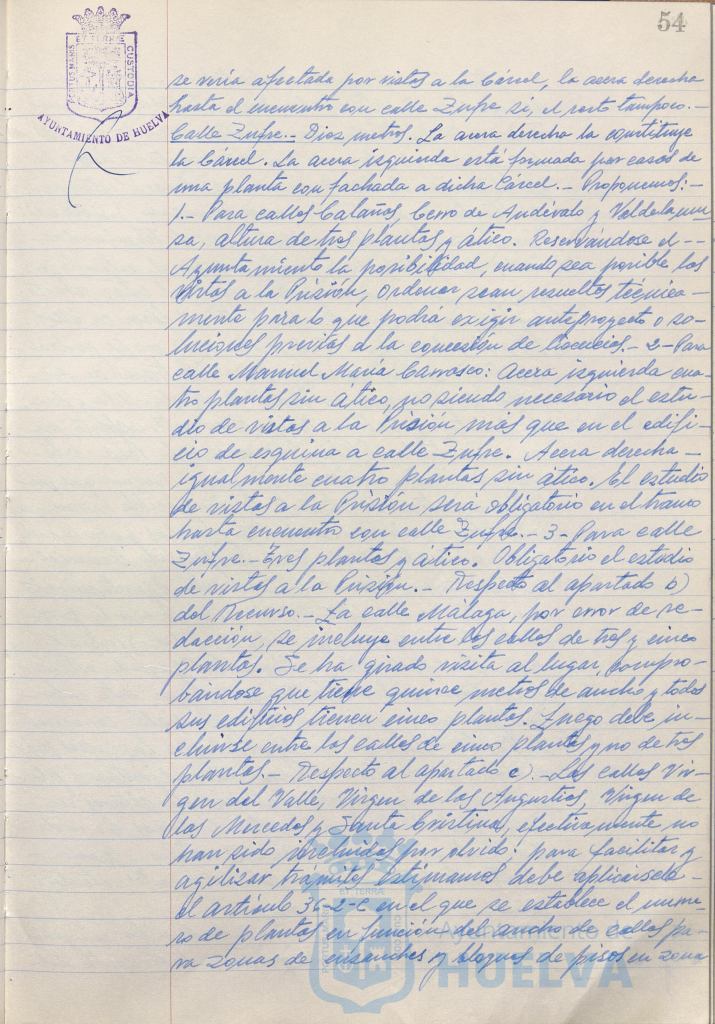 54
PORTUS MARIS ET TERRE CUSTODIA
AYUNTAMIENTO DE HUELVA
se vería afectada por vistas a la Cárcel, la acera derecha
hasta el encuentro con calle Zufre si, el resto tampoco.-
Calle Zufre.- Diez metros. La acera derecha la constituye
la Cárcel. La acera izquierda está formada por casas de
una planta con fachada a dicha Cárcel.- Proponemos:-
1.- Para calles Calañas, Cerro de Andévalo y Valdelamu-
sa, altura de tres plantas y ático. Reservándose el --
Ayuntamiento la posibilidad, cuando sea posible las
vistas a la Prisión, ordenar sean resueltos técnica-
mente para lo que podrá exigir anteproyecto o so-
luciones previas a la concesión de licencias.- 2-Para
calle Manuel María Carrasco: Acera izquierda cua-
tro plantas sin ático, no siendo necesario el estu-
dio de vistas a la Prisión más que en el edifi-
cio de esquina a calle Zufre. Acera derecha -
igualmente cuatro plantas sin ático. El estudio
de vistas a la Prisión será obligatorio en el tramo
hasta encuentro con calle Zufre.- 3- Para calle
Zufre.- Tres plantas y ático. Obligatorio el estudio
de vistas a la Prisión.- Respecto al apartado b)
del Recurso.- La calle Málaga, por error de re-
dacción, se incluye entre las calles de tres y cinco
plantas. Se ha girado visita al lugar, compro-
bándose que tiene quince metros de ancho y todos
sus edificios tienen cinco plantas. Luego debe in-
cluirse entre las calles de cinco plantas y no de tres
plantas.- Respecto al apartado c).- Las calles Vir-
gen del Valle, Virgen de las Angustias, Virgen de
las Mercedes y Santa Cristina, efectivamente no
han sido incluidas por olvido; para facilitar y
agilizar tramites estimamos debe aplicarsele
el artículo 36-2-C en el que se establece el nume-
ro de plantas en función del ancho de calles pa-
ra zonas de ensanches y bloques de pisos en zona
Ayuntamiento de
HUELVA